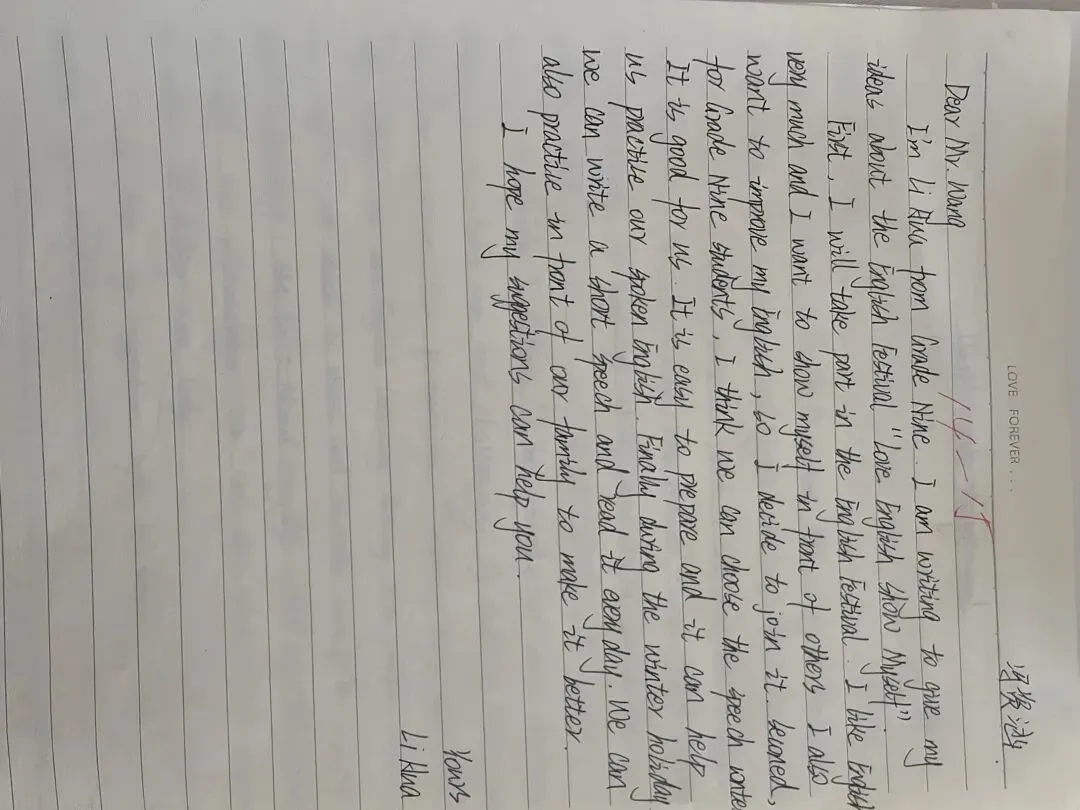 LOVE FOREVER...
14-15
Dear Mr. Wang
I'm Li Hua from Grade Nine. I am writing to give my
ideas about the English Festival "Love English Show Myself"
First, I will take part in the English Festival. I like English
very much and I want to show myself in front of others I also
want to improve my English, so I decide to join it. Second,
for Grade Nine students, I think we can choose the speech
It is good for us. It is easy to prepare and it can help
us practise our spoken English. Finally during the winter holiday
we can write a short speech and read it every day. We can
also practise in front of our family to make it better.
I hope my suggestions can help you.
Yours
Li Hua